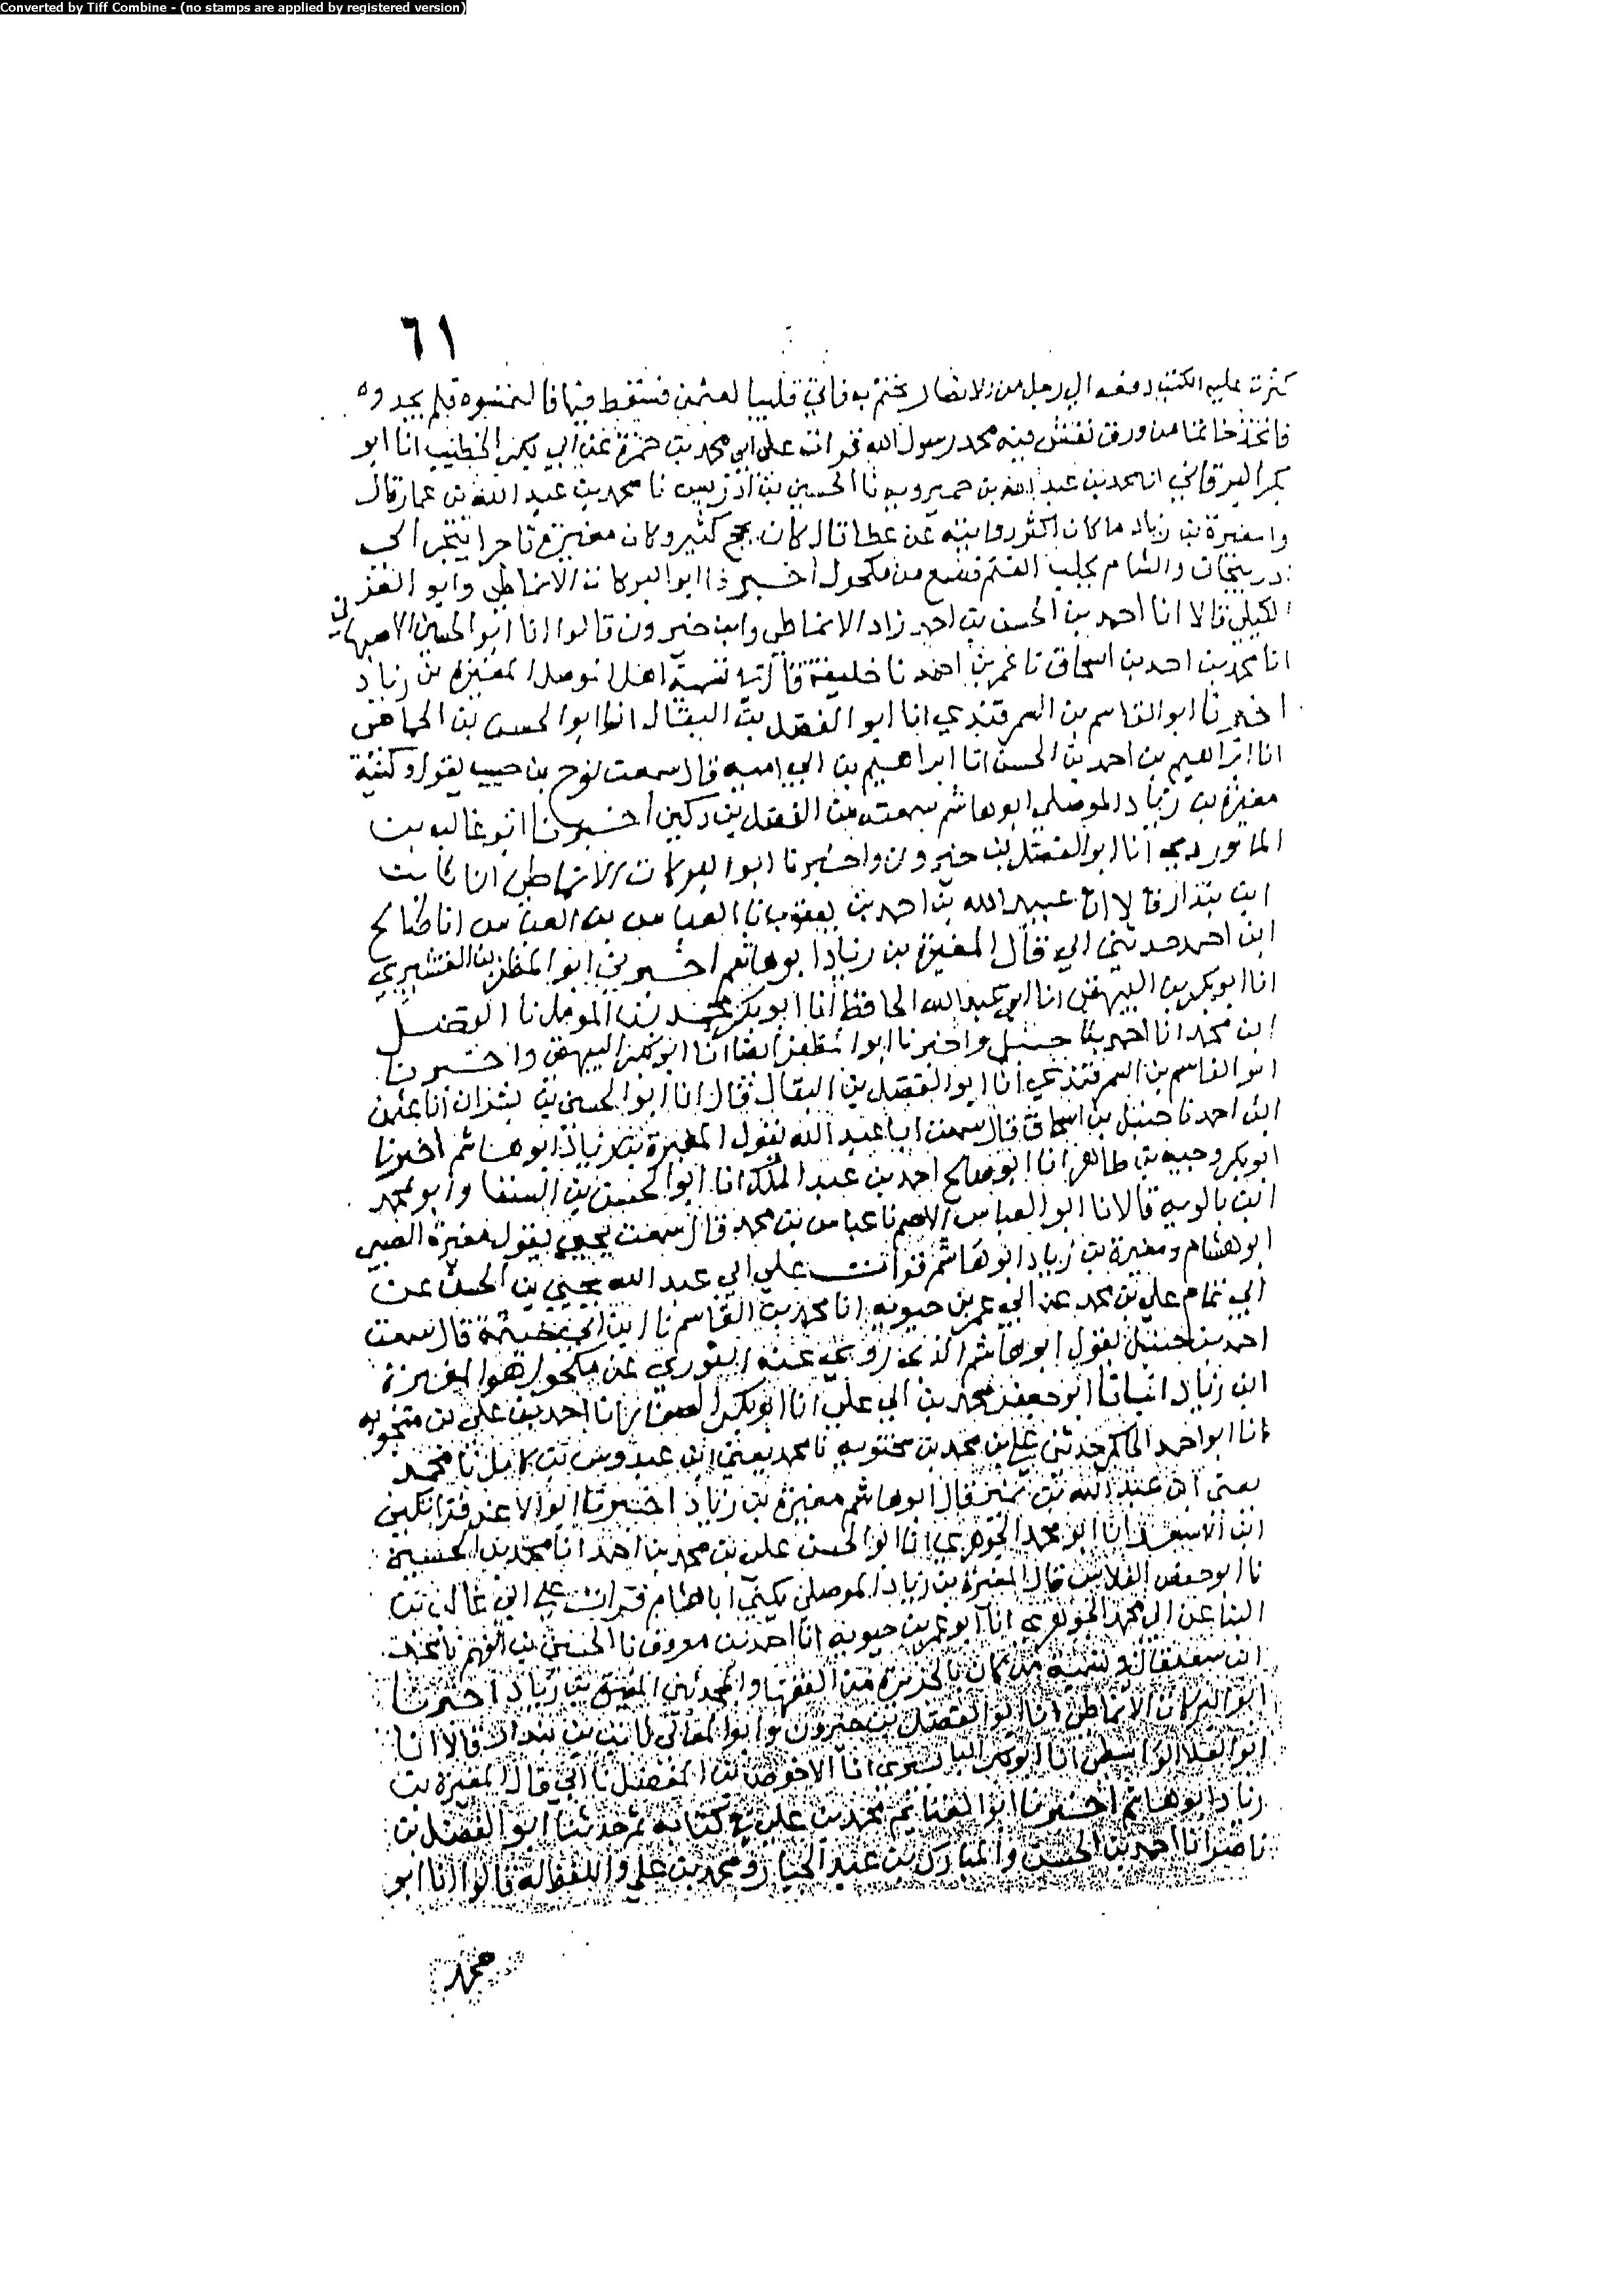 Converted by Tiff Combine - (no stamps are applied by registered version)
٦١
كثرت عليه الكتب دفعه الى رجل من الانصار يختم به فاتى قليبا لعثمن فسقط فيها فالتمسوه فلم يجدوه
فاتخذ خاتما من ورق نقش فيه محمد رسول الله قرات على ابي محمد بن حمزة عن ابي بكر الخطيب انا ابو
بكر البرقاني انا محمد بن عبد الله بن خميرويه نا الحسين بن ادريس نا محمد بن عبد الله بن عمار قال
وا مغيرة بن زياد ما كان اكثر روايته عن عطا قال كان يحج كثير وكان مغيرة تاجرا يتجر الى
ذربيجان والشام يجلب الغنم فسمع من مكحول اخبرنا ابو البركات الانماطي وابو العز
الكيلي قالا انا احمد بن الحسن بن احمد زاد الانماطي وابن خيرون قالوا انا ابو الحسين الاصبهاني
انا محمد بن احمد بن اسحاق نا عمر بن احمد نا خليفة قال في تسمية اهل الموصل المغيرة بن زياد
اخبرنا ابو القاسم بن السمرقندي انا ابو الفضل بن البقال انا ابو الحسن بن الحمامي
انا ابراهيم بن احمد بن الحسن انا ابراهيم بن ابي امية قال سمعت نوح بن حبيب يقول وكنية
مغيرة بن زياد الموصلي ابو هاشم سمعته من الفضل بن دكين اخبرنا ابو غالب بن
الماوردي انا ابو الفضل بن خيرون واخبرنا ابو البركات الانماطي انا ثابت
ابن بندار قالا انا عبيد الله بن احمد بن يعقوب انا العباس بن العباس انا صالح
ابن احمد حدثني ابي قال المغيرة بن زياد ابو هاشم اخبرني ابو المظفر بن القشيري
انا ابو بكر بن البيهقي انا ابو عبد الله الحافظ انا ابو بكر محمد بن المومل نا الفضل
ابن محمد انا احمد بن حنبل واخبرنا ابو المظفر ايضا انا ابو بكر البيهقي واخبرنا
ابو القاسم بن السمرقندي انا ابو الفضل بن البقال قال انا ابو الحسين بن بشران انا عثمن
ابن احمد نا حنبل بن اسحاق قال سمعت ابا عبد الله يقول المغيرة بن زياد ابو هاشم اخبرنا
ابو بكر وجيه بن طاهر انا ابو صالح احمد بن عبد الملك انا ابو الحسن بن السقا وابو محمد
ابن بالويه قالا نا ابو العباس الاصم نا عباس بن محمد قال سمعت يحيى يقول مغيرة الضبي
ابو هشام ومغيرة بن زياد ابو هاشم قرات على ابي عبد الله يحيى بن الحسن عن
ابي تمام علي بن محمد عن ابي عمر بن حيويه انا محمد بن القاسم نا ابن ابي خيثمة قال سمعت
احمد بن حنبل يقول ابو هاشم الذي روى عنه الثوري عن مكحول هو المغيرة
ابن زياد انبانا ابو جعفر محمد بن ابي علي انا ابو بكر الصفار انا احمد بن علي بن منجويه
انا ابو احمد الحاكم حدثني علي بن محمد بن سختويه نا محمد يعني ابن عبدوس بن كامل نا محمد
يعني ابن عبد الله بن نمير قال ابو هاشم مغيرة بن زياد اخبرنا ابو الاعز قراتكين
ابن الاسعد انا ابو محمد الجوهري انا ابو الحسن علي بن محمد بن احمد انا محمد بن الحسين
نا ابو حفص الفلاس قال المغيرة بن زياد الموصلي يكنى ابا هشام قرات على ابي غالب بن
البنا عن ابي محمد الجوهري انا ابو عمر بن حيويه انا احمد بن معروف نا الحسين بن الفهم نا محمد
ابن سعد قال في تسمية من كان بالجزيرة من الفقها والمحدثين المغيرة بن زياد اخبرنا
ابو البركات الانماطي انا ابو الفضل بن خيرون وابو المعالي ثابت بن بندار قالا انا
ابو العلا الواسطي انا ابو بكر البابسيري انا الاحوص بن المفضل نا ابي قال المغيرة بن
زياد ابو هاشم اخبرنا ابو الغنايم محمد بن علي في كتابه ثم حدثنا ابو الفضل بن
ناصر انا احمد بن الحسن والمبارك بن عبد الجبار ومحمد بن علي واللفظ له قالوا انا ابو
محمد